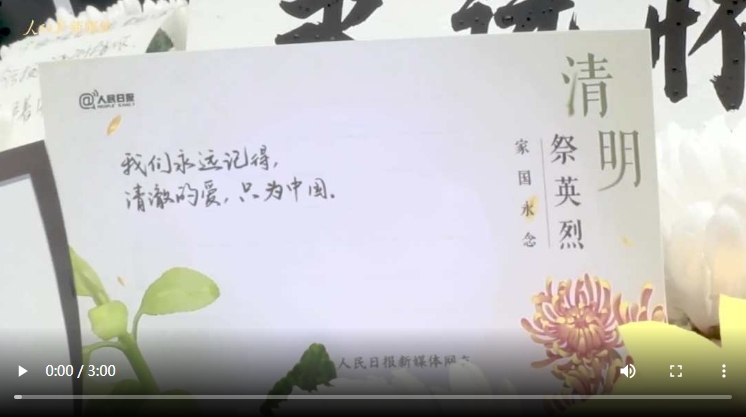 @人民日报
PEOPLE'S DAILY
清明
祭英烈
家国永念
我们永远记得,
清澈的爱,只为中国.
人民日报新媒体
0:00 / 3:00